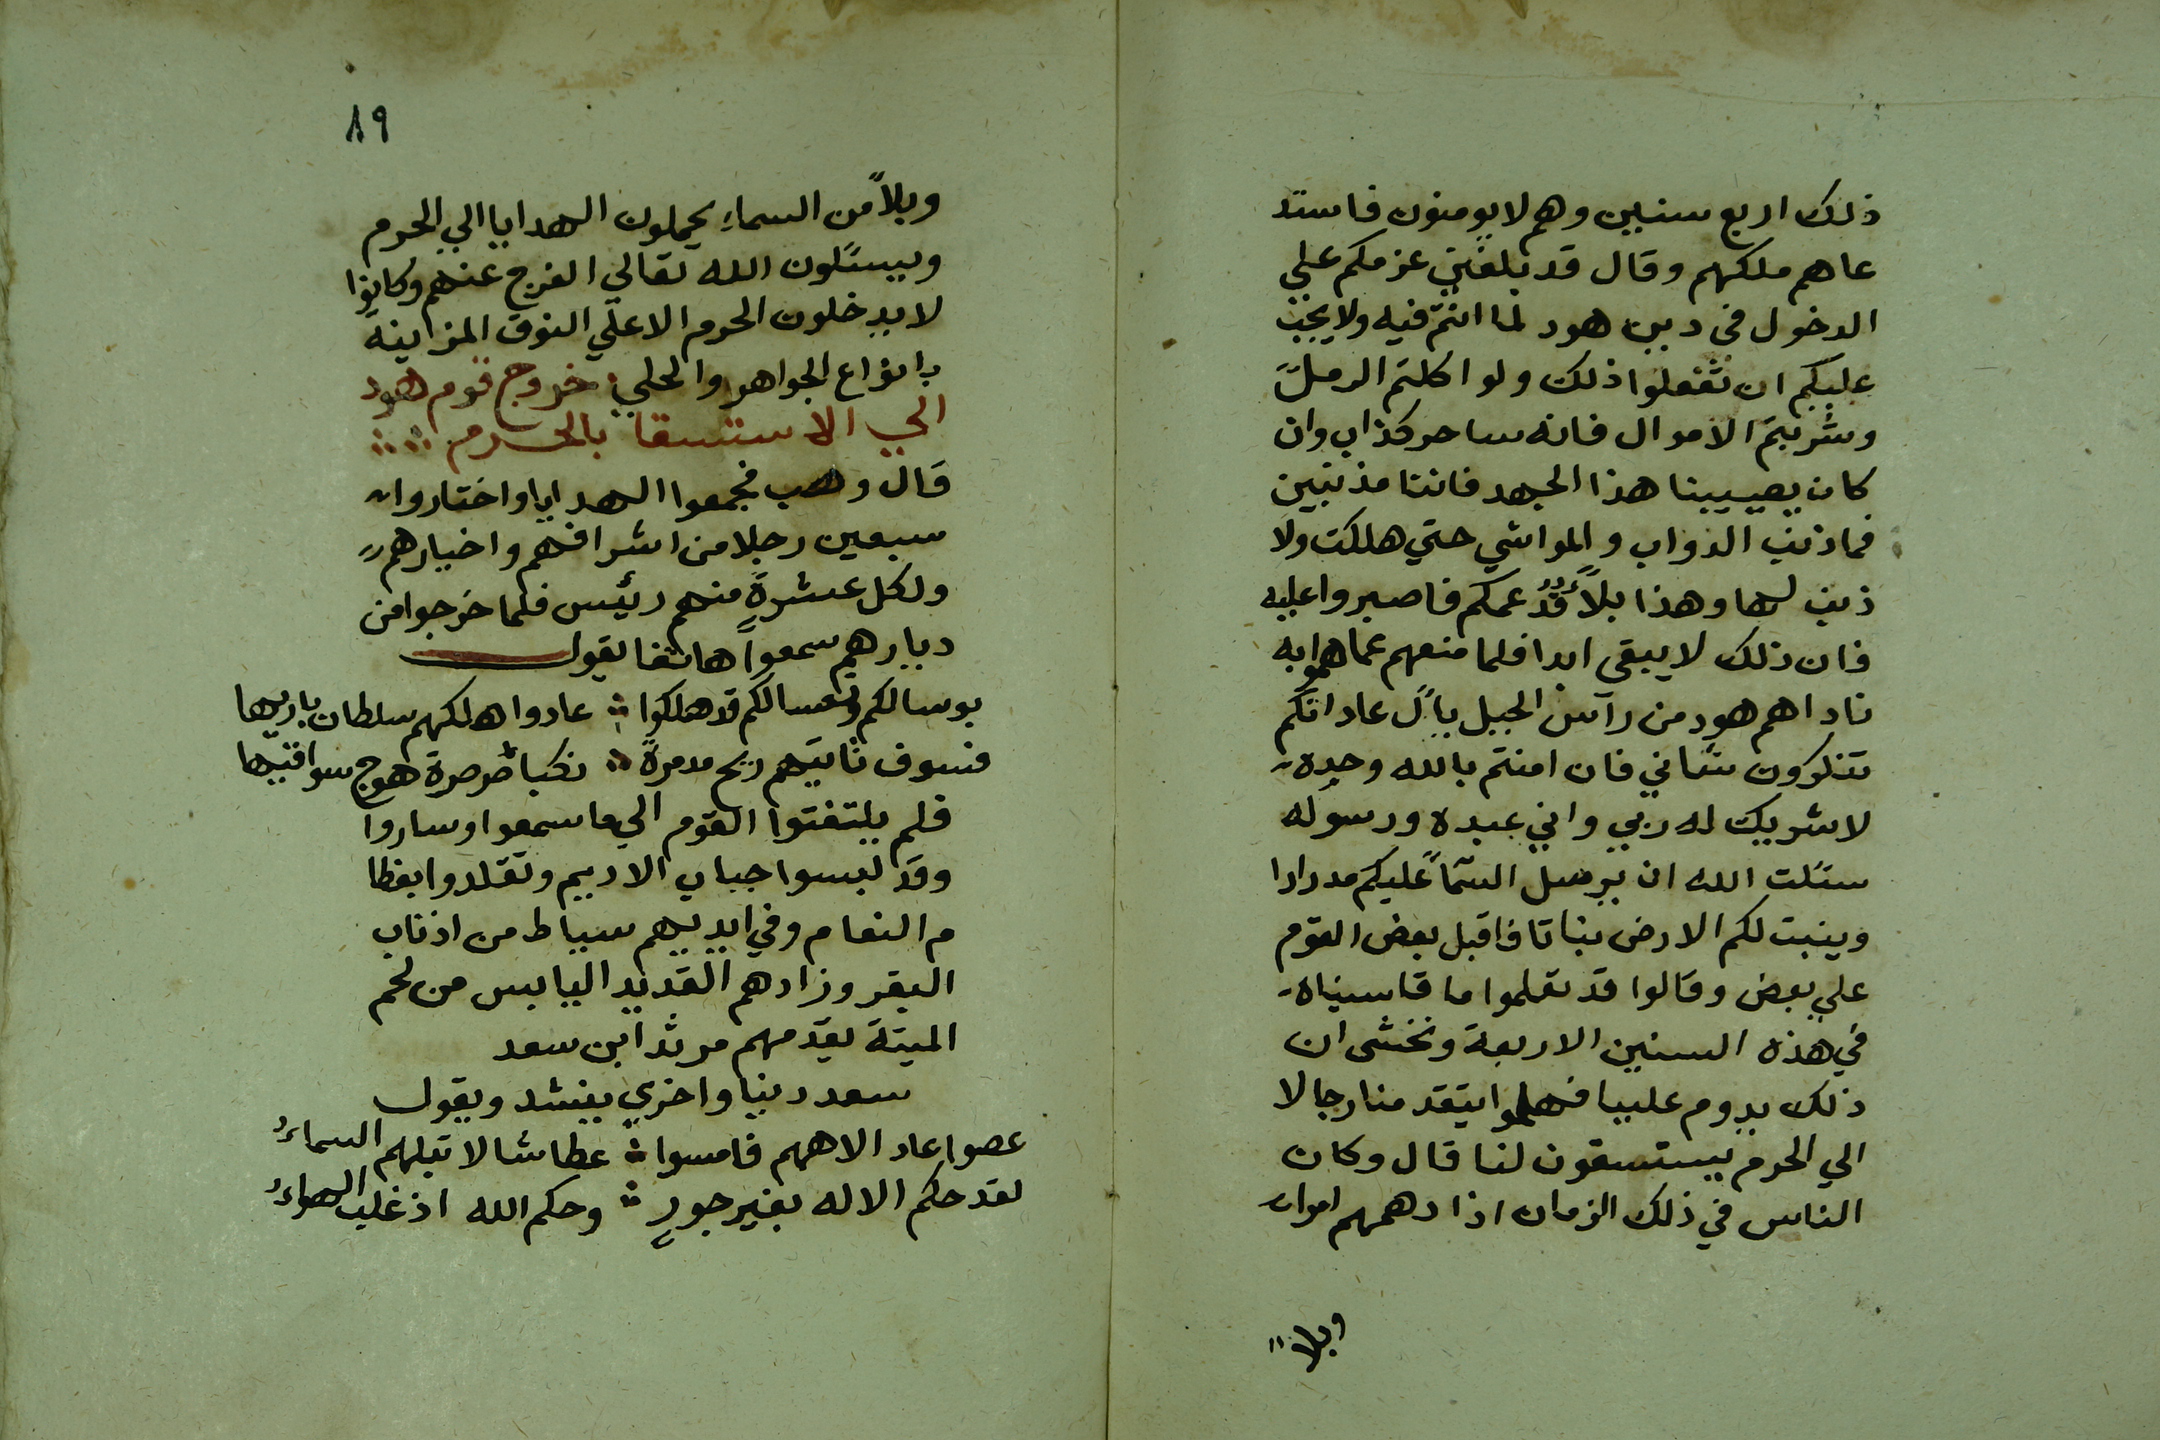 ذلك اربع سنين وهم لا يومنون فاستد
عاهم ملكهم وقال قد بلغني عزمكم علي
الدخول في دين هود لما انتم فيه ولا يجب
عليكم ان تفعلوا ذلك ولو اكلتم الرمل
وشربتم الاموال فانه ساحر كذاب وان
كان يصيبنا هذا الجهد فاننا مذنبين
فما ذنب الدواب والمواشي حتي هلكت ولا
ذنب لها وهذا بلاً قد عمكم فاصبروا عليه
فان ذلك لا يبقى ابدا فلما منعهم عما هموا به
ناداهم هود من رآس الجبل يا آل عاد اتكم
تنكرون شاني فان امنتم بالله وحده
لا شريك له ربي واني عبده ورسوله
سئلت الله ان يرسل السمآ عليكم مدرارا
وينبت لكم الارض نباتا فاقبل بعض القوم
علي بعض وقالوا قد تعلموا ما قاسيناه
في هذه السنين الاربعة ونخشى ان
ذلك يدوم علينا فهلموا يتقد منا رجالا
الي الحرم يستسقون لنا قال وكان
الناس في ذلك الزمان اذا دهمهم امراو
وبلا
٨٩
وبلاً من السماء يحملون الهدايا الي الحرم
ويسئلون الله تعالي الفرج عنهم وكانوا
لا يدخلون الحرم الا علي النوق المزاينة
بانواع الجواهر والحلي خروج قوم هود
الي الاستسقا بالحرم
قال وهب فجمعوا الهدايا واختاروا
سبعين رجلا من اشرافهم واخيارهم
ولكل عشرة منهم رئيس فلما خرجوا من
ديارهم سمعوا هاتفا يقول
بوسا لكم وتعسا لكم قد هلكوا عادوا هلكهم سلطان باريها
فسوف تاتيهم ريح مدمرة نكبا صرصرة هوج سوافيها
فلم يلتفتوا القوم الي ما سمعوا وساروا
وقد لبسوا جباب الاديم وتقلدوا بعظا
م النعام وفي ايديهم سياط من اذناب
البقر وزادهم القديد اليابس من لحم
الميتة يقدمهم مرثد ابن سعد
سعد دنيا واخري ينشد ويقول
عصوا عاد الاههم فامسوا عطاشا لا تبلهم السماء
لقد حكم الاله بغير جور وحكم الله اذ غلب الهواء